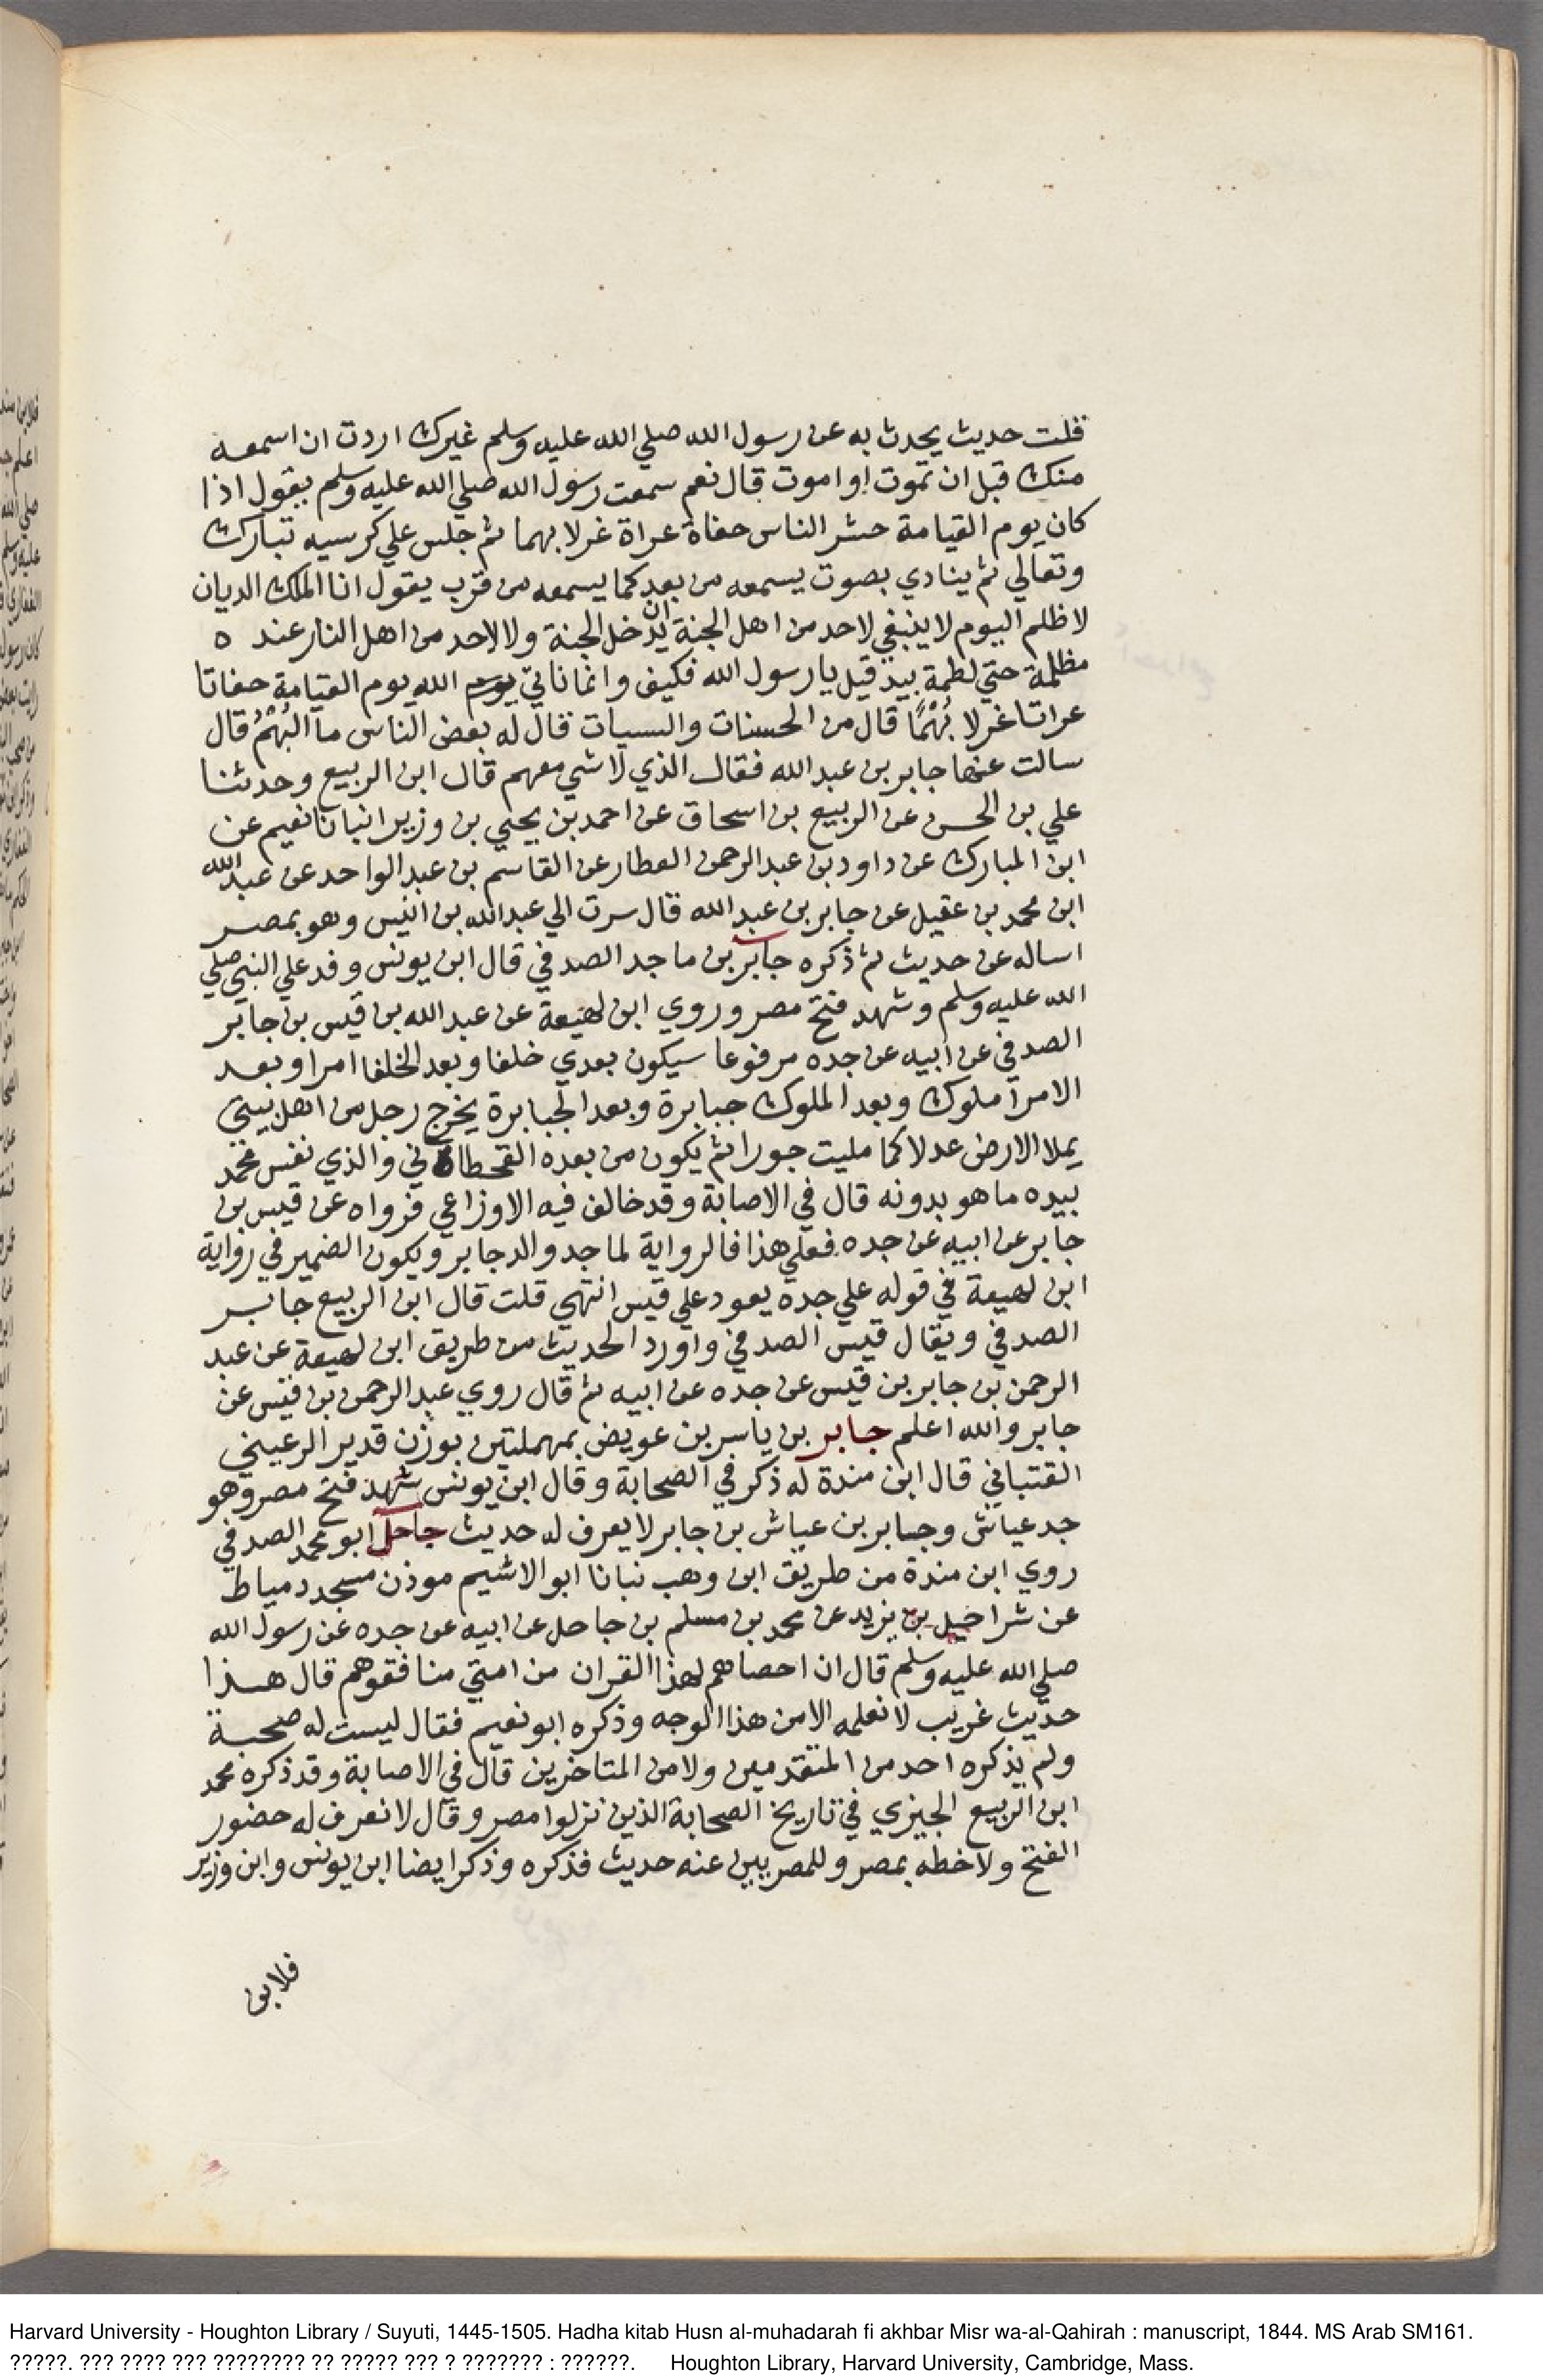 قلت حديث يحدث به عن رسول الله صلي الله عليه وسلم غيرك اردت ان اسمعه
منك قبل ان تموت او اموت قال نعم سمعت رسول الله صلي الله عليه وسلم يقول اذا
كان يوم القيامة حشر الناس حفاة عراة غرلا بهما ثم جلس علي كرسيه تبارك
وتعالي ثم ينادي بصوت يسمعه من بعد كما يسمعه من قرب يقول انا الملك الديان
لا ظلم اليوم لا ينبغي لاحد من اهل الجنة ان يدخل الجنة ولا لاحد من اهل النار عند ه
مظلمة حتي لطمة بيد قيل يا رسول الله فكيف وانما ناتي يوم الله يوم القيامة حفاتا
عراتا غرلا بُهْمًا قال من الحسنات والسيات قال له بعض الناس ما البُهْمُ قال
سالت عنها جابر بن عبد الله فقال الذي لا شي معهم قال ابن الربيع وحدثنا
علي بن الحسن عن الربيع بن اسحاق عن احمد بن يحيي بن وزير انبانا نعيم عن
ابن المبارك عن داود بن عبد الرحمن العطار عن القاسم بن عبد الواحد عن عبد الله
ابن محمد بن عقيل عن جابر بن عبد الله قال سرت الي عبد الله بن انيس وهو بمصر
اساله عن حديث ثم ذكره جابر بن ماجد الصدفي قال ابن يونس وفد علي النبي صلي
الله عليه وسلم وشهد فتح مصر وروي ابن لهيعة عن عبد الله بن قيس بن جابر
الصدفي عن ابيه عن جده مرفوعا سيكون بعدي خلفا وبعد الخلفا امرا وبعد
الامرآ ملوك وبعد الملوك جبابرة وبعد الجبابرة يخرج رجل من اهل بيتي
يملا الارض عدلا كما مليت جورا ثم يكون من بعده القحطاني والذي نفس محمد
بيده ما هو بدونه قال في الاصابة وقد خالف فيه الاوزاعي فرواه عن قيس بن
جابر عن ابيه عن جده فعلي هذا فالرواية لماجد والد جابر ويكون الضمير في رواية
ابن لهيعة في قوله علي جده يعود علي قيس انتهي قلت قال ابن الربيع جابر
الصدفي ويقال قيس الصدفي واورد الحديث من طريق ابن لهيعة عن عبد
الرحمن بن جابر بن قيس عن جده عن ابيه ثم قال روي عبد الرحمن بن قيس عن
جابر والله اعلم جابر بن ياسر بن عويض بمهملتين بوزن قدير الرعيني
القتباني قال ابن مندة له ذكر في الصحابة وقال ابن يونس شهد فتح مصر وهو
جد عياش وجابر بن عياش بن جابر لا يعرف له حديث جاحل ابو محمد الصدفي
روي ابن مندة من طريق ابن وهب نبانا ابو الاشيم موذن مسجد دمياط
عن شراحيل بن يزيد عن محمد بن مسلم بن جاحل عن ابيه عن جده عن رسول الله
صلي الله عليه وسلم قال ان احصاهم لهذا القران من امتي منافقوهم قال هذا
حديث غريب لا نعلمه الا من هذا الوجه وذكره ابو نعيم فقال ليست له صحبة
ولم يذكره احد من المتقدمين ولا من المتاخرين قال في الاصابة وقد ذكره محمد
ابن الربيع الجيزي في تاريخ الصحابة الذين نزلوا مصر وقال لا نعرف له حضور
الفتح ولا خطه بمصر وللمصريين عنه حديث فذكره وذكر ايضا ابن يونس وابن وزير
فلا بن
Harvard University - Houghton Library / Suyuti, 1445-1505. Hadha kitab Husn al-muhadarah fi akhbar Misr wa-al-Qahirah : manuscript, 1844. MS Arab SM161.
?????. ??? ???? ??? ???????? ?? ????? ??? ? ??????? : ??????. Houghton Library, Harvard University, Cambridge, Mass.